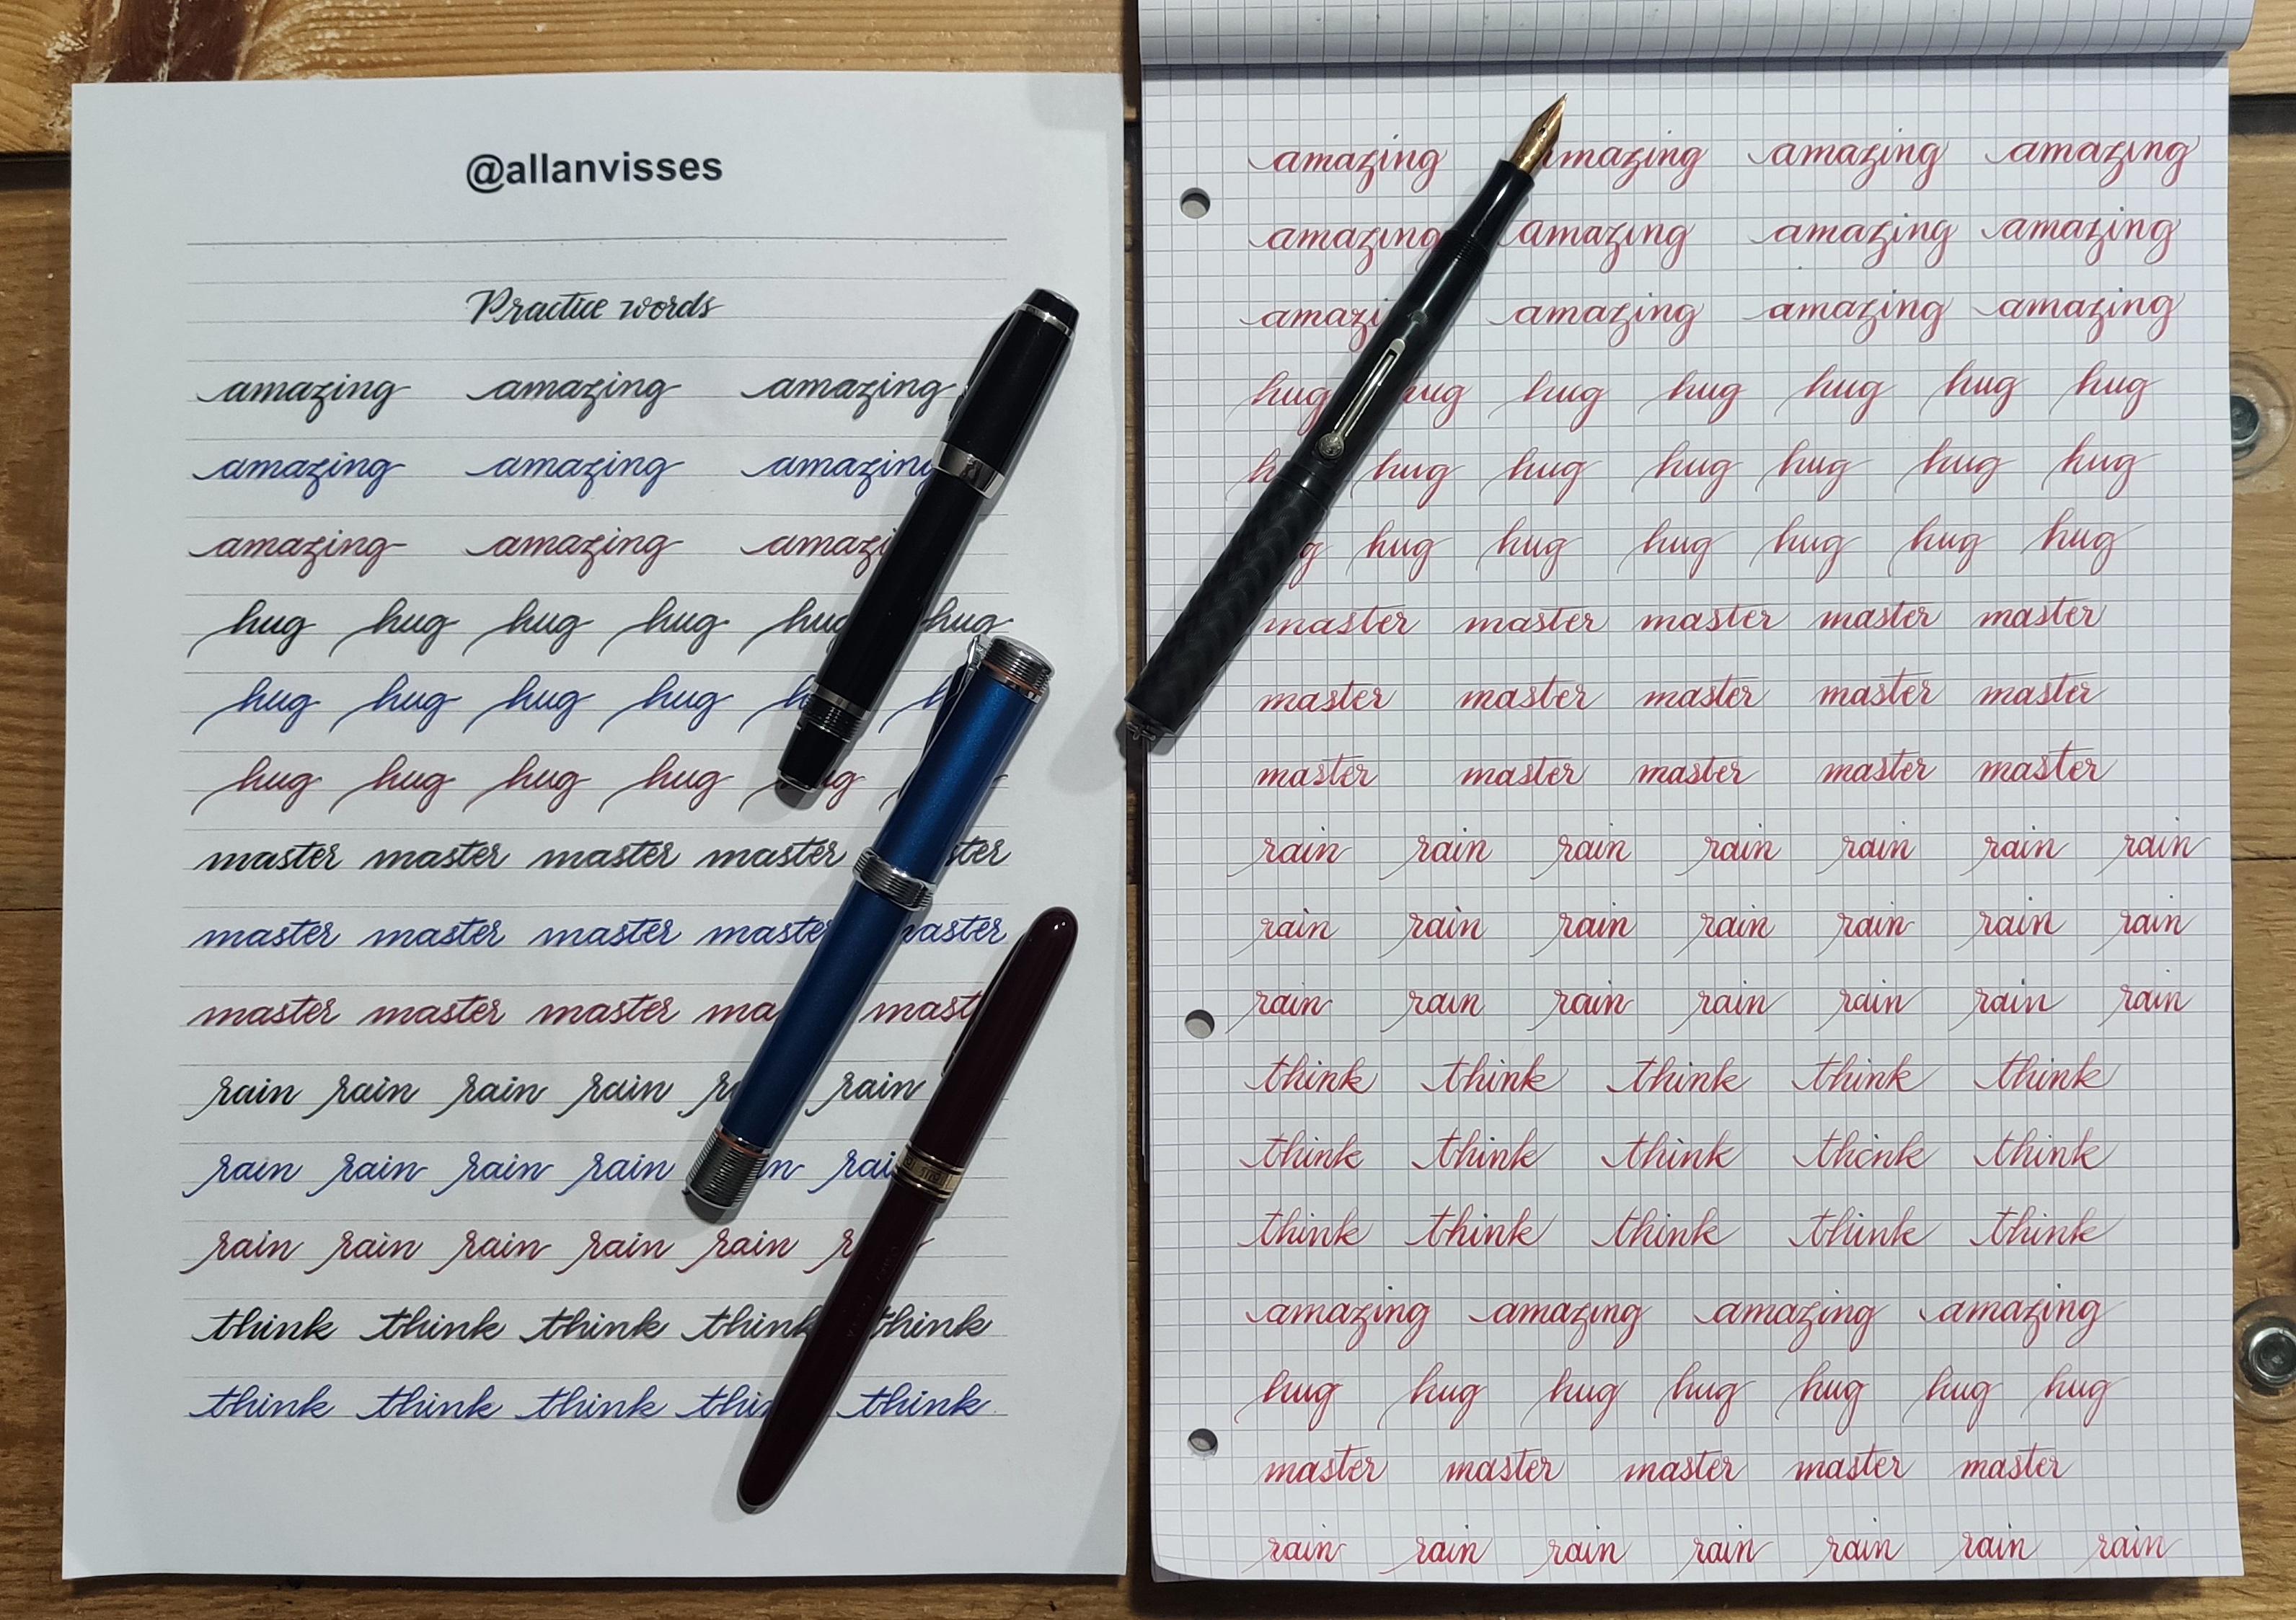 @allanvisses
Practice words
amazing amazing amazing
amazing amazing amazing
amazing amazing amazi
hug hug hug hug hug hug
hug hug hug hug h h
hug hug hug hug g
master master master master ster
master master master master master
master master master ma mast
rain rain rain rain ra rain
rain rain rain rain n rai
rain rain rain rain rain r
think think think think think
think think think thin think
amazing mazing amazing amazing
amazing amazing amazing amazing
amazi amazing amazing amazing
hug ug hug hug hug hug hug
h hug hug hug hug hug hug
g hug hug hug hug hug hug
master master master master master
master master master master master
master master master master master
rain rain rain rain rain rain rain
rain rain rain rain rain rain rain
rain rain rain rain rain rain rain
think think think think think
think think think thcnk think
think think think think think
amazing amazing amazing amazing
hug hug hug hug hug hug hug
master master master master master
rain rain rain rain rain rain rain